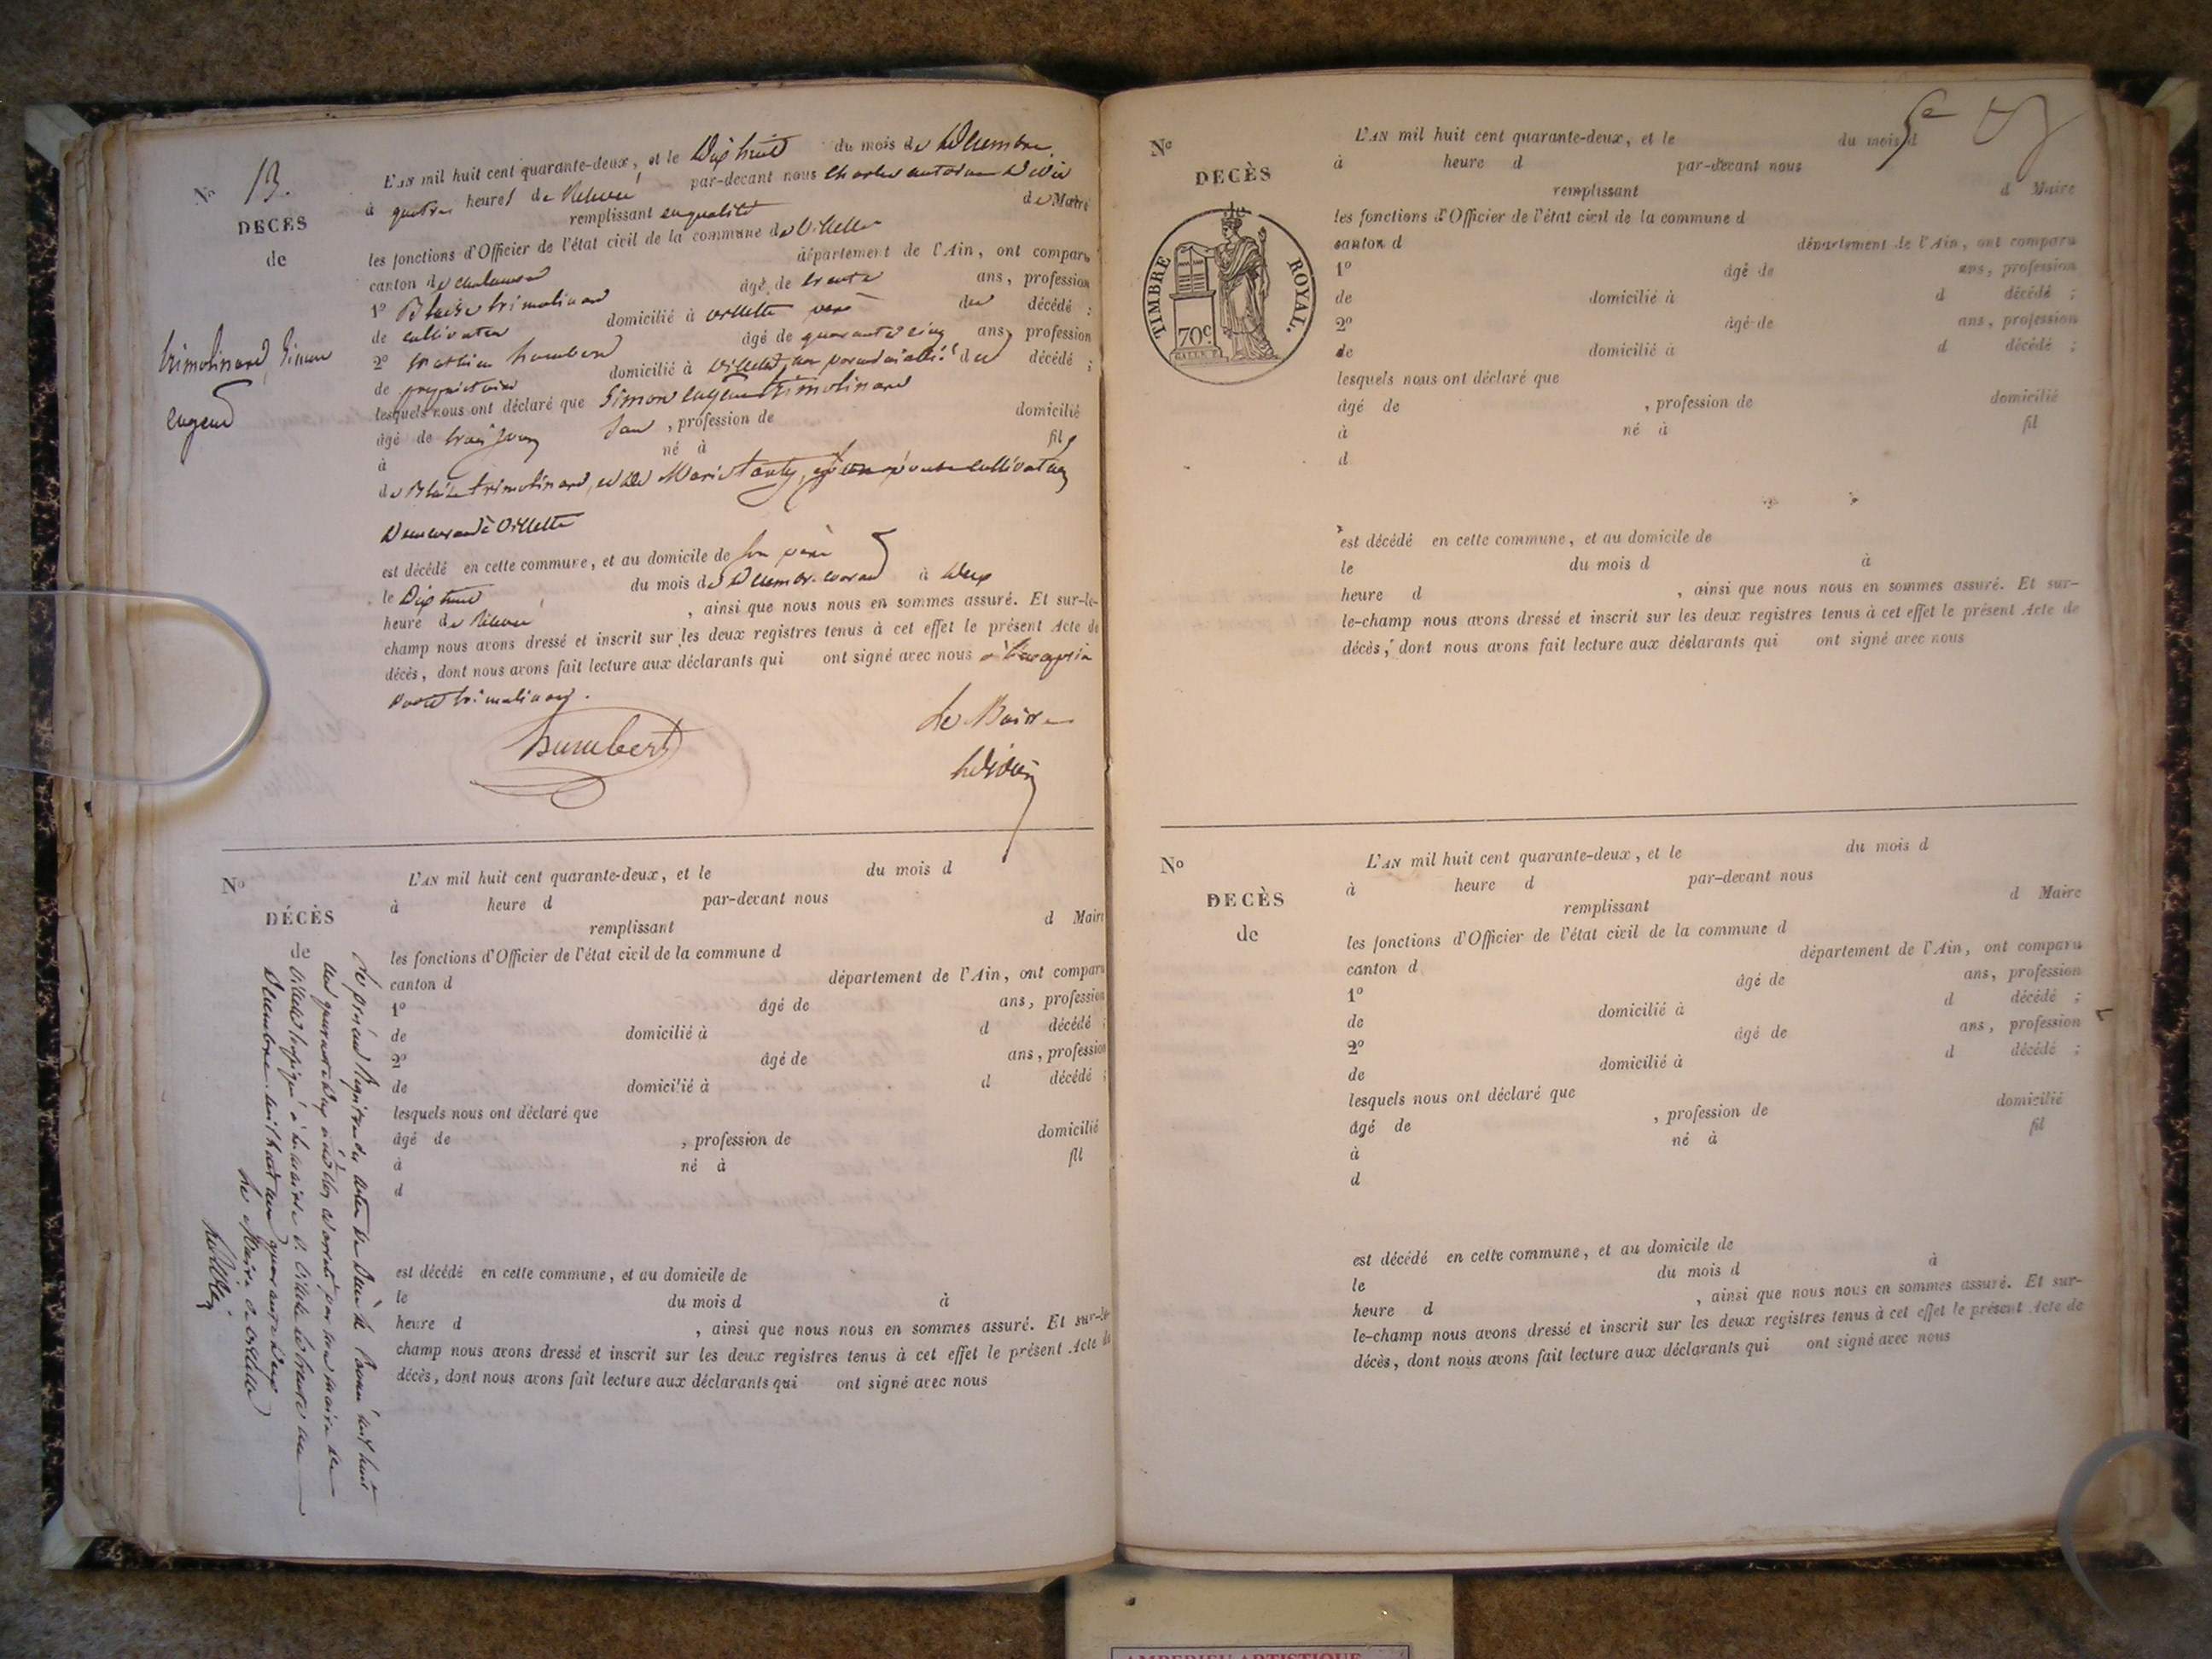 No 13.
DECÈS
de
trimolinard, Simon
Eugene
L'AN mil huit cent quarante-deux, et le Dix huit du mois de Décembre
à quatre heures de Relevée par-devant nous Charles Didier
remplissant en qualité de Maire
les fonctions d'Officier de l'état civil de la commune de Villette
canton de chalamont département de l'Ain, ont comparu
1º Blaise trimolinard âgé de trente ans, profession
de cultivateur domicilié à villette père du décédé ;
2º humbert âgé de quarante cinq ans, profession
de propriétaire domicilié à villette, non parent du décédé ;
lesquels nous ont déclaré que Simon Eugene trimolinard
âgé de trois jours , profession de domicilié
à né à fils
de Blaise trimolinard, et de Marie cultivateurs
Demeurant à Villette
est décédé en cette commune, et au domicile de son père
le Dix huit du mois de Décembre courant à deux
heure de Relevée , ainsi que nous nous en sommes assuré. Et sur-le-
champ nous avons dressé et inscrit sur les deux registres tenus à cet effet le présent Acte de
décès, dont nous avons fait lecture aux déclarants qui ont signé avec nous
trimolinard.
humbert
Le Maire
Didier
No
DÉCÈS
de
L'AN mil huit cent quarante-deux, et le du mois d
à heure d par-devant nous
remplissant d Maire
les fonctions d'Officier de l'état civil de la commune d
canton d département de l'Ain, ont comparu
1º âgé de ans, profession
de domicilié à d décédé ;
2º âgé de ans, profession
de domicilié à d décédé ;
lesquels nous ont déclaré que
âgé de , profession de domicilié
à né à fil
d
est décédé en cette commune, et au domicile de
le du mois d à
heure d , ainsi que nous nous en sommes assuré. Et sur-le-
champ nous avons dressé et inscrit sur les deux registres tenus à cet effet le présent Acte de
décès, dont nous avons fait lecture aux déclarants qui ont signé avec nous
Le présent Registre des actes de Décès de l'année mil huit
cent quarante deux a été clos et arrêté par nous maire de
Villette soussigné à la mairie de Villette le trente un
Décembre mil huit cent quarante deux
Le Maire de Villette
No
DECÈS
de
TIMBRE ROYAL.
70c
L'AN mil huit cent quarante-deux, et le du mois d
à heure d par-devant nous
remplissant d Maire
les fonctions d'Officier de l'état civil de la commune d
canton d département de l'Ain, ont comparu
1º âgé de ans, profession
de domicilié à d décédé ;
2º âgé de ans, profession
de domicilié à d décédé ;
lesquels nous ont déclaré que
âgé de , profession de domicilié
à né à fil
d
est décédé en cette commune, et au domicile de
le du mois d à
heure d , ainsi que nous nous en sommes assuré. Et sur-
le-champ nous avons dressé et inscrit sur les deux registres tenus à cet effet le présent Acte de
décès, dont nous avons fait lecture aux déclarants qui ont signé avec nous
No
DECÈS
de
L'AN mil huit cent quarante-deux, et le du mois d
à heure d par-devant nous
remplissant d Maire
les fonctions d'Officier de l'état civil de la commune d
canton d département de l'Ain, ont comparu
1º âgé de ans, profession
de domicilié à d décédé ;
2º âgé de ans, profession
de domicilié à d décédé ;
lesquels nous ont déclaré que
âgé de , profession de domicilié
à né à fil
d
est décédé en cette commune, et au domicile de
le du mois d à
heure d , ainsi que nous nous en sommes assuré. Et sur-
le-champ nous avons dressé et inscrit sur les deux registres tenus à cet effet le présent Acte de
décès, dont nous avons fait lecture aux déclarants qui ont signé avec nous